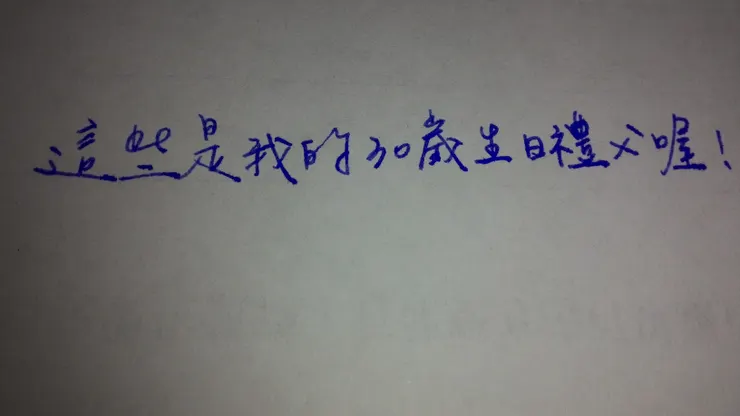 這些是我的30歲生日禮ㄨˋ喔!